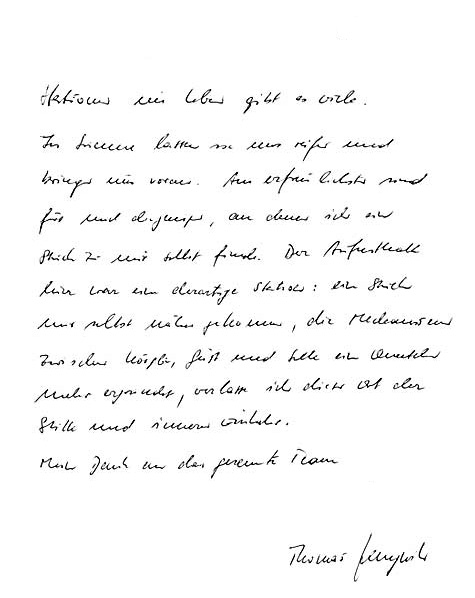 Stationen im Leben gibt es viele.
In Summe lassen sie uns reifer und
bringen uns voran. Am erfreulichsten sind
für mich diejenigen, an denen ich ein
Stück zu mir selbst finde. Der Aufenthalt
hier war eine derartige Station: ein Stück
mir selbst näher gekommen, die Mechanismen
zwischen Körper, Geist und Seele ein
mehr ergründet, verlasse ich diesen Ort der
Stille und inneren Einkehr.
Mein Dank an das gesamte Team
Thomas